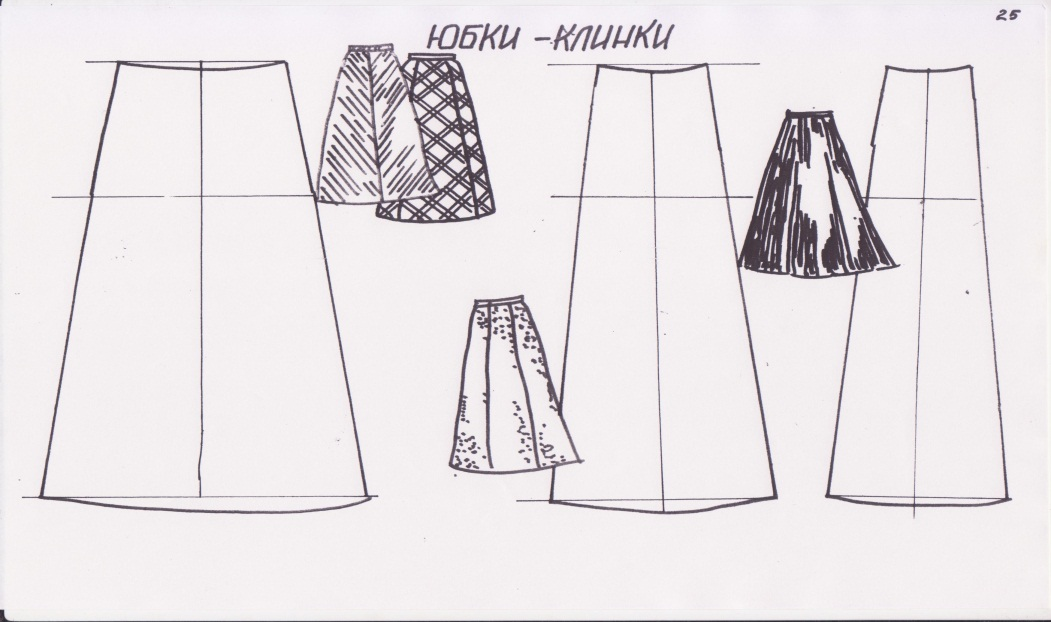 25
ЮБКИ - КЛИНКИ